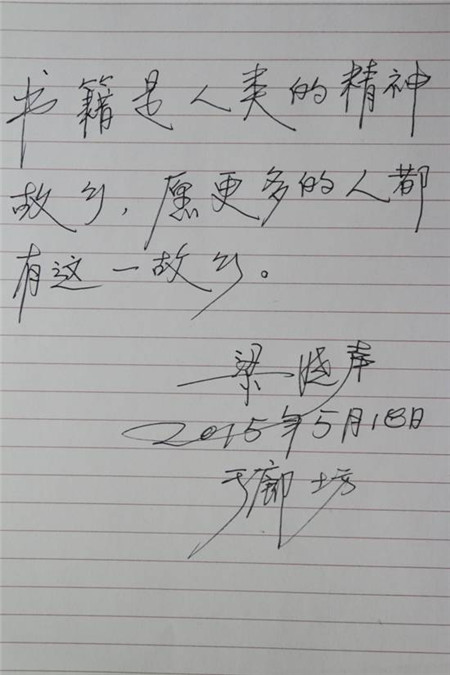 书籍是人类的精神
故乡，愿更多的人都
有这一故乡。
梁晓声
2015年5月18日
于廊坊